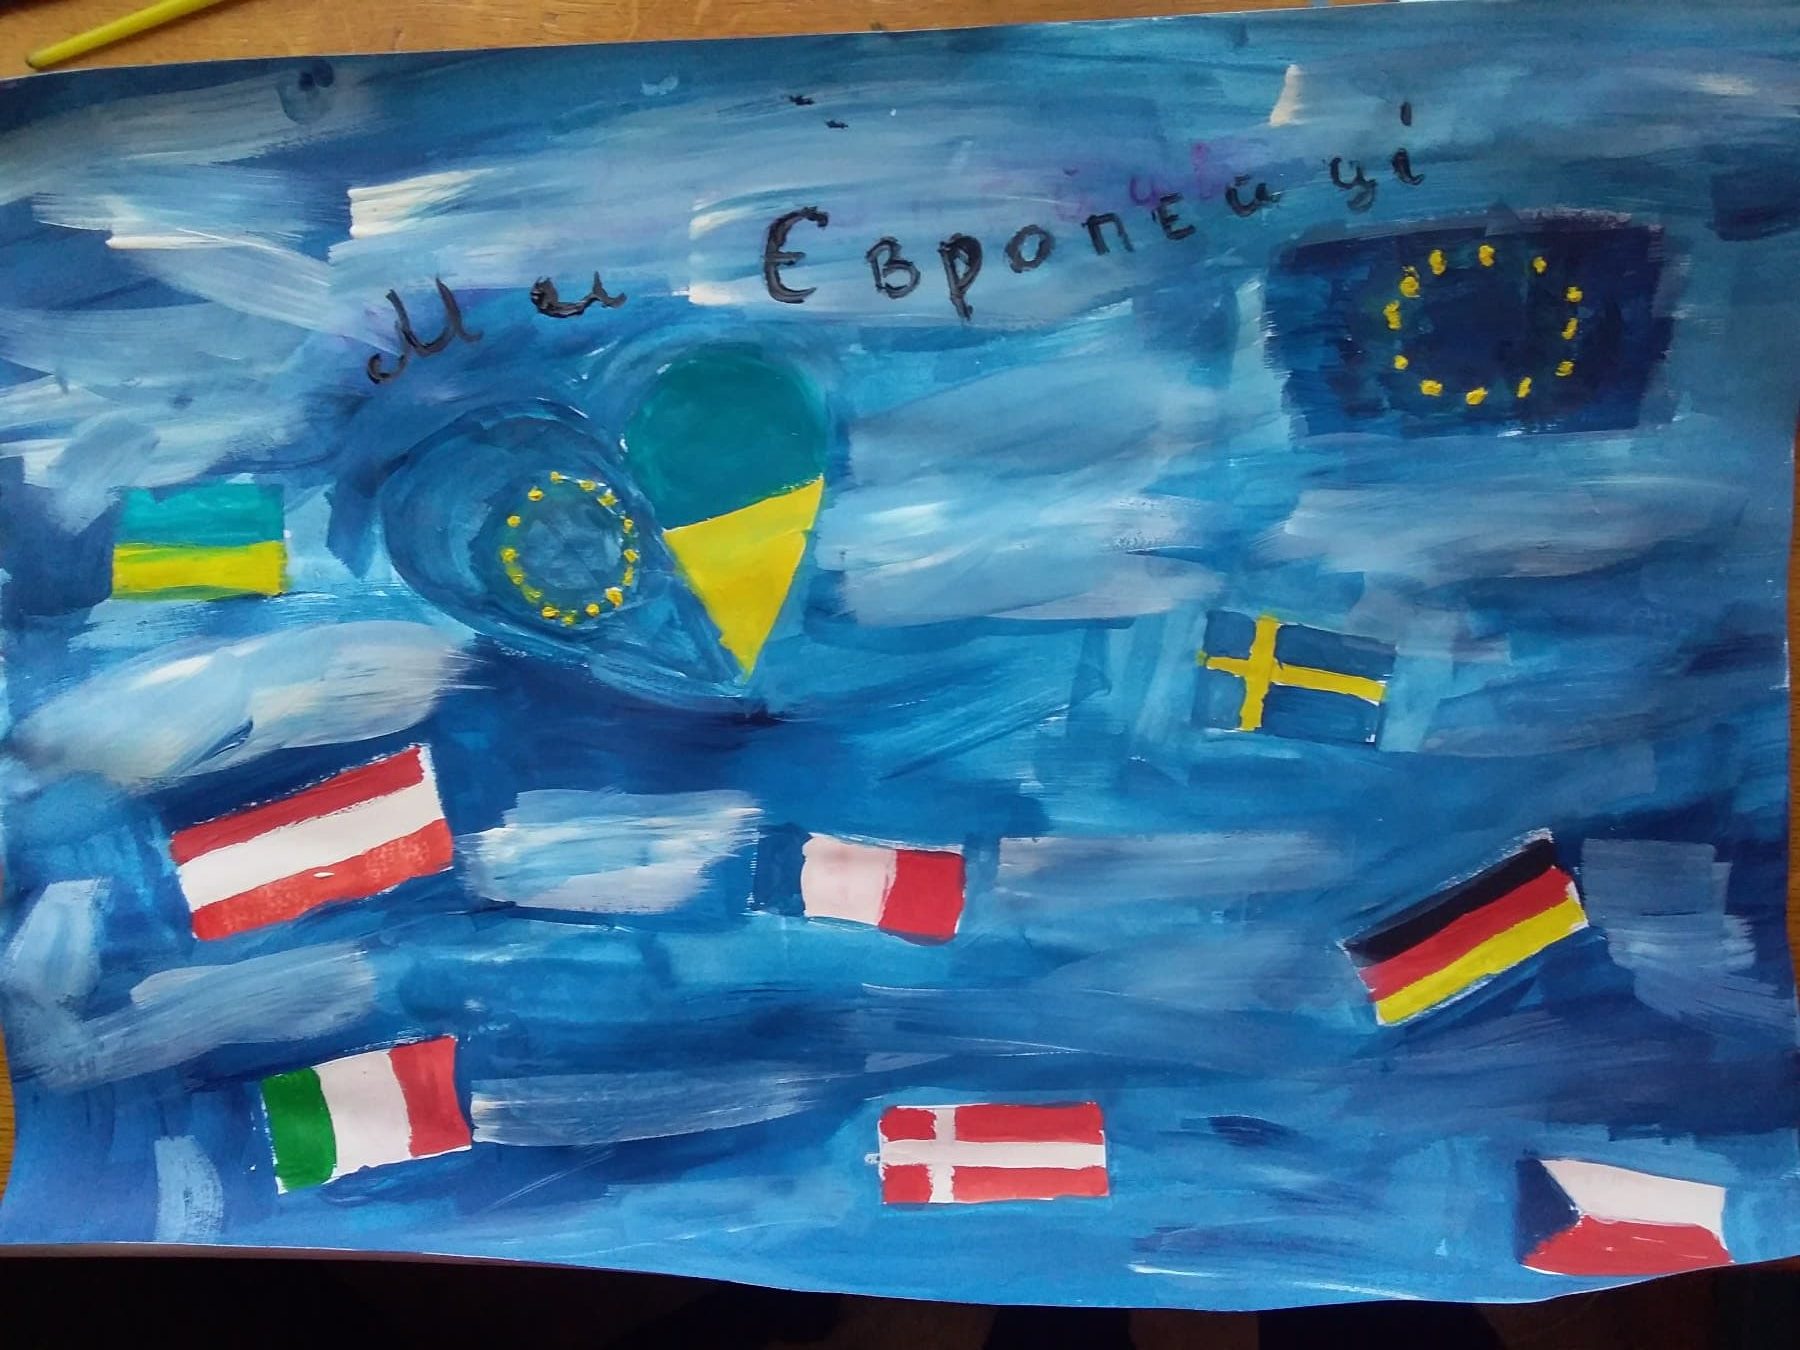 Ми Європейці